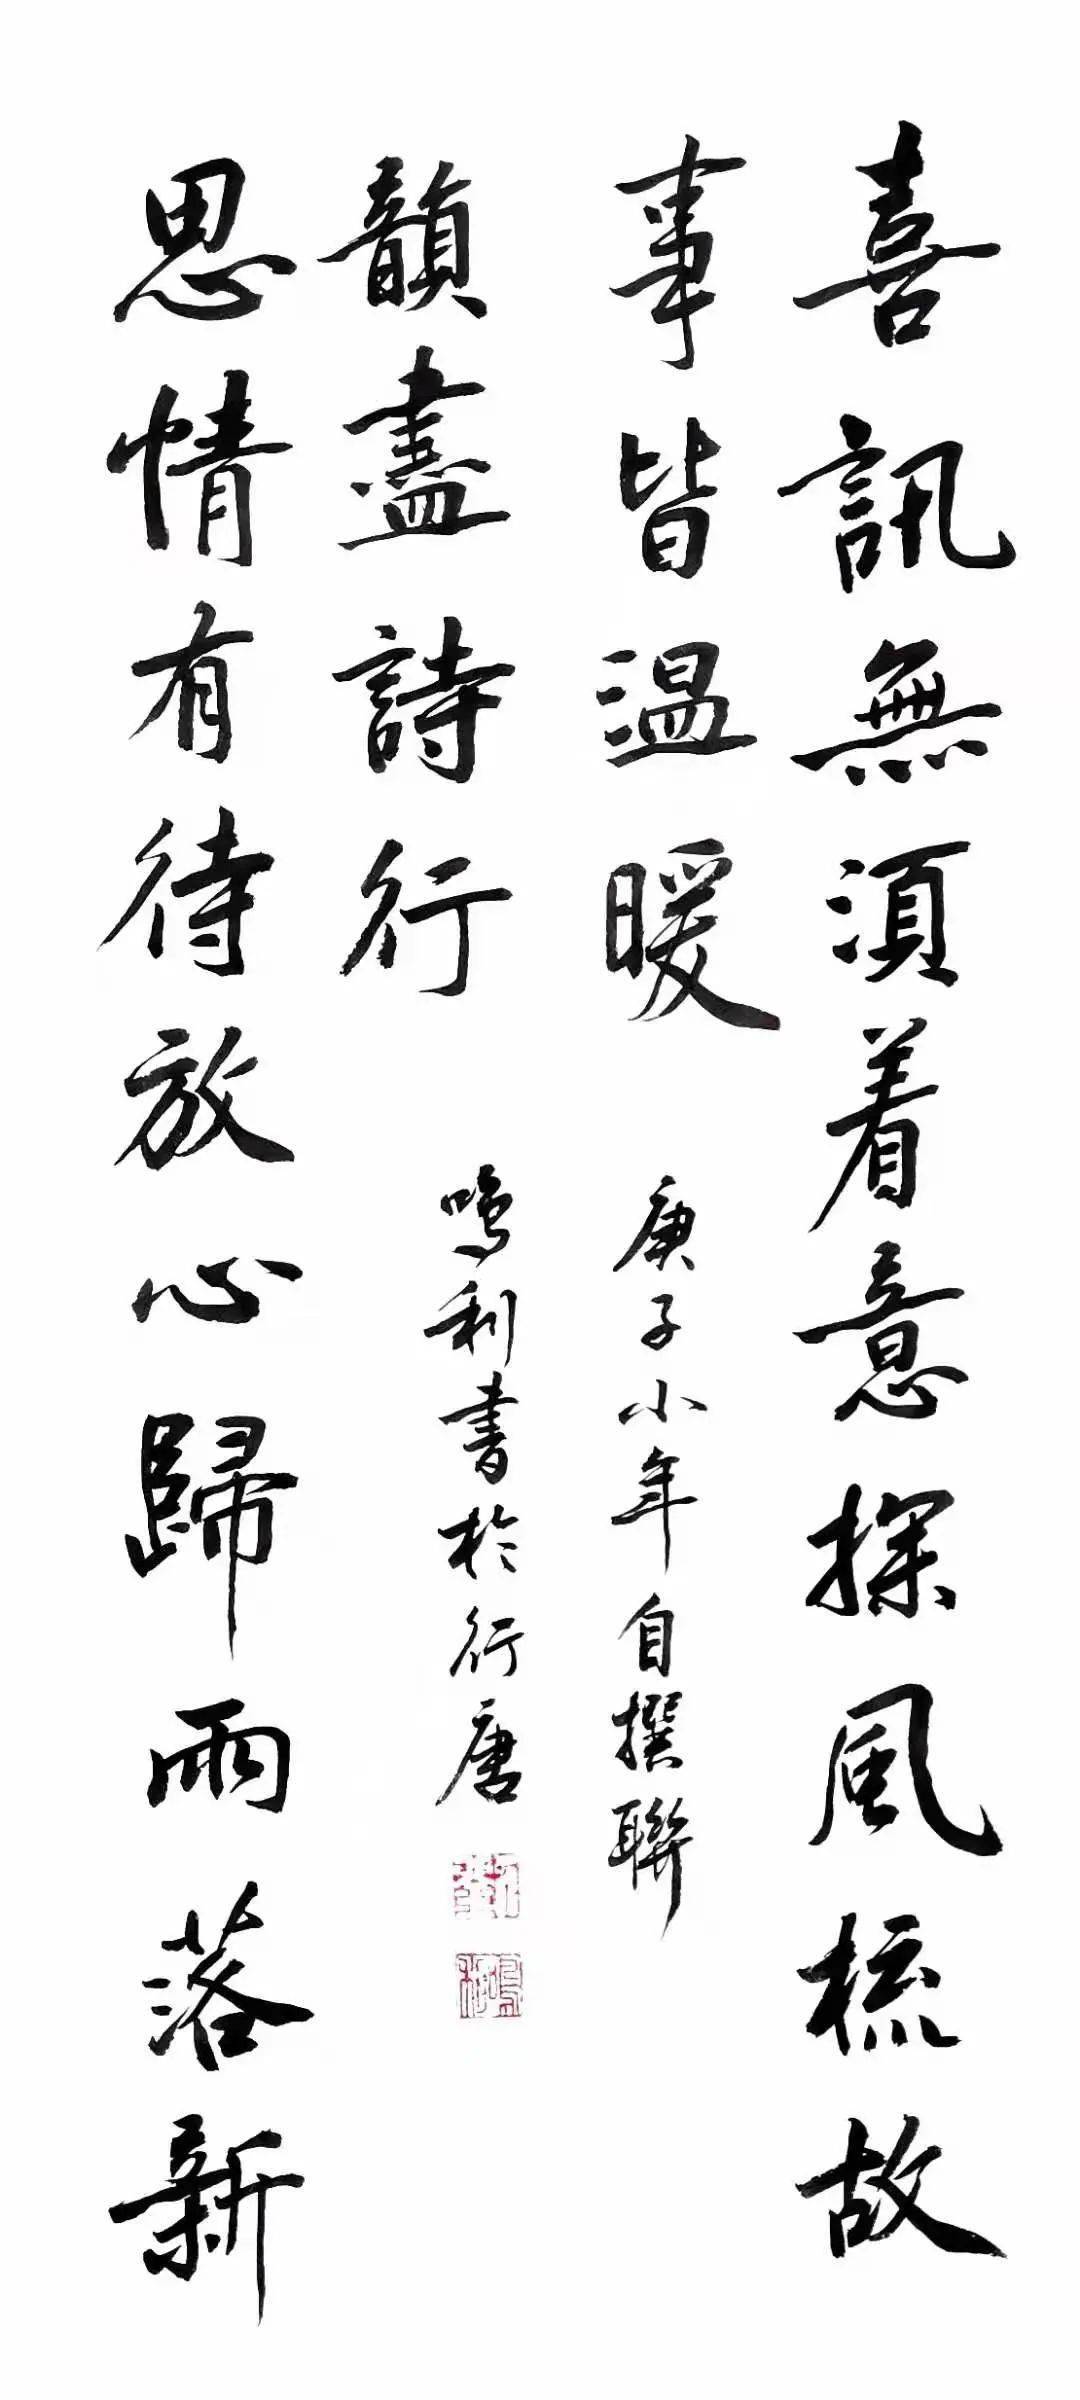 喜訊無湏着意探風梳故
事皆温暖
庚子小年自撰聯
思情有待放心歸雨落新
韻盡詩行
鳴利書於行唐